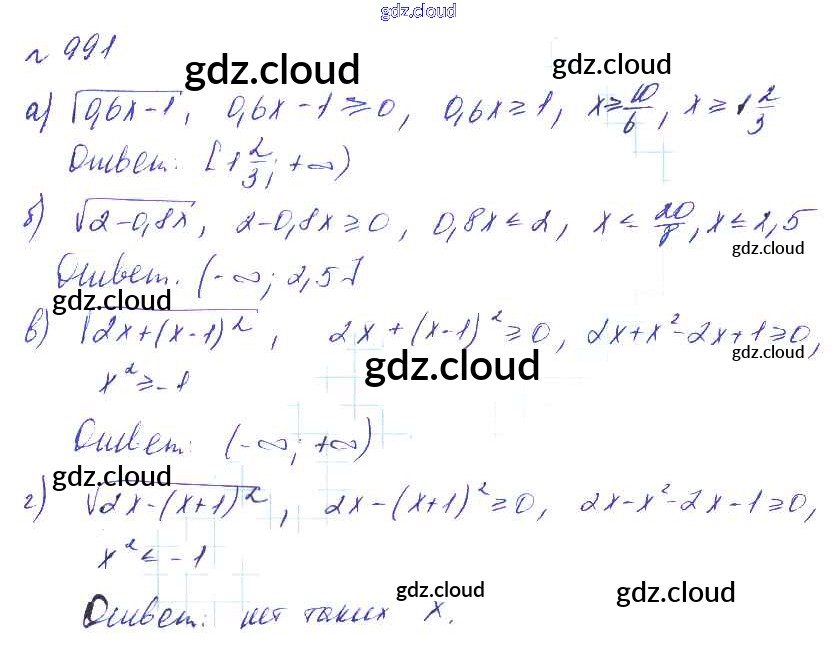 gdz.cloud
№ 991
gdz.cloud gdz.cloud
а) √(0,6x-1), 0,6x-1≥0, 0,6x≥1, x≥10/6, x≥1 2/3
Ответ: [1 2/3; +∞)
б) √(2-0,8x), 2-0,8x≥0, 0,8x≤2, x≤20/8, x≤2,5
gdz.cloud
Ответ. (-∞; 2,5]
gdz.cloud
в) √(2x+(x-1)²), 2x+(x-1)²≥0, 2x+x²-2x+1≥0,
gdz.cloud gdz.cloud
x²≥-1
Ответ: (-∞; +∞)
gdz.cloud
г) √(2x-(x+1)²), 2x-(x+1)²≥0, 2x-x²-2x-1≥0,
x²≤-1
gdz.cloud gdz.cloud
Ответ: нет таких x.